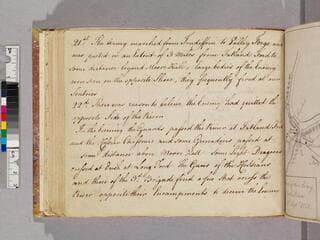 21st. The Army marched from Tredyffrin to Valley Forge and
was posted in an extent of 3 Miles from Fatland Ford to
some distance beyond Moore Hall; large bodies of the Enemy
were seen on the opposite Shore, they frequently fired at our
Centries.
22d. There was reason to believe the Enemy had quitted the
opposite side of the River.
In the Evening the Guards passed the River at Fatland Ford
and the Hessian Chasseurs and some Grenadiers passed it at
some distance above Moore Hall. Some Light Dragoons
crossed at Dusk at Long Ford. The Guns of the Hessians
and those of the 3d. Brigade fired a few Shot across the
River opposite their Encampments to deceive the Enemy